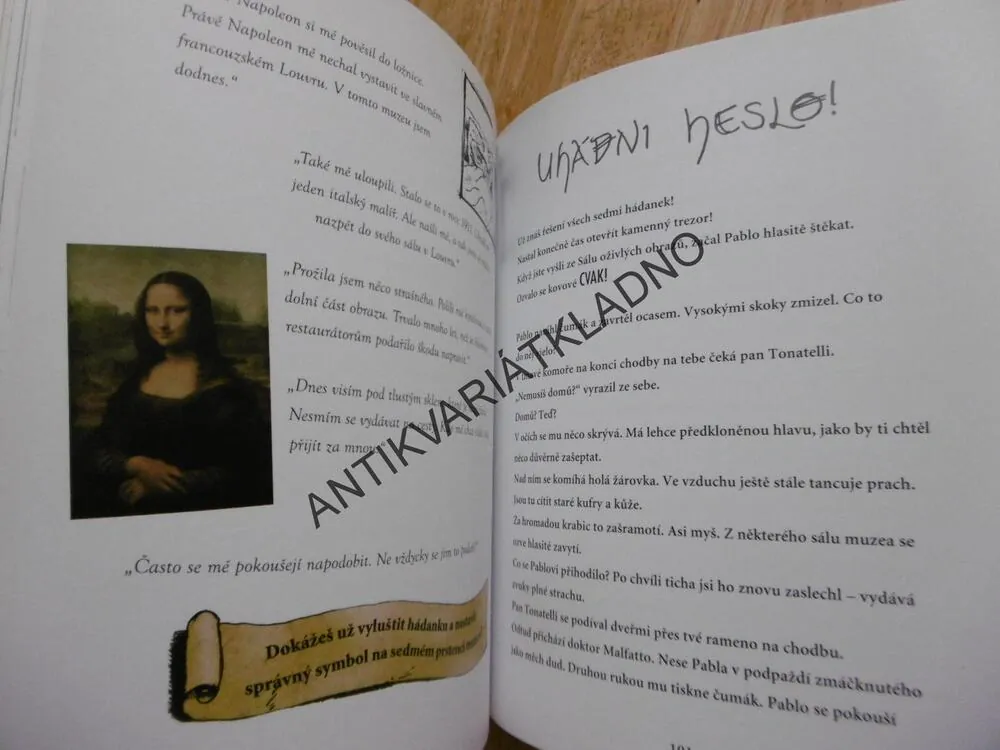 Napoleon si mě pověsil do ložnice.
Právě Napoleon mě nechal vystavit ve slavném
francouzském Louvru. V tomto muzeu jsem
dodnes.“
„Také mě uloupili. Stalo se to v roce 1911.
jeden italský malíř. Ale našli mě, a tak jsem se
nazpět do svého sálu v Louvru.“
„Prožila jsem něco strašného.
dolní část obrazu. Trvalo mnoho let, než se
restaurátorům podařilo škodu napravit.“
„Dnes visím pod tlustým sklem
Nesmím se vydávat na cesty. Kdo mě chce
přijít za mnou.“
„Často se mě pokoušejí napodobit. Ne vždycky se jim to
Dokážeš už vyluštit hádanku a nastavit
správný symbol na sedmém prstenci
UHÁDNI HESLO!
Už znáš řešení všech sedmi hádanek!
Nastal konečně čas otevřít kamenný trezor!
Když jste vyšli ze Sálu oživlých obrazů, začal Pablo hlasitě štěkat.
Ozvalo se kovové CVAK!
Pablo čumák a zavrtěl ocasem. Vysokými skoky zmizel. Co to
do něj vjelo?
komoře na konci chodby na tebe čeká pan Tonatelli.
„Nemusíš domů?“ vyrazil ze sebe.
Domů? Teď?
V očích se mu něco skrývá. Má lehce předkloněnou hlavu, jako by ti chtěl
něco důvěrně zašeptat.
Nad ním se komíhá holá žárovka. Ve vzduchu ještě stále tancuje prach.
Jsou tu cítit staré kufry a kůže.
Za hromadou krabic to zašramotí. Asi myš. Z některého sálu muzea se
ozve hlasité zavytí.
Co se Pablovi přihodilo? Po chvíli ticha jsi ho znovu zaslechl – vydává
zvuky plné strachu.
Pan Tonatelli se podíval dveřmi přes tvé rameno na chodbu.
Odtud přichází doktor Malfatto. Nese Pabla v podpaždí zmáčknutého
jako měch dud. Druhou rukou mu tiskne čumák. Pablo se pokouší
ANTIKVARIÁTKLADNO